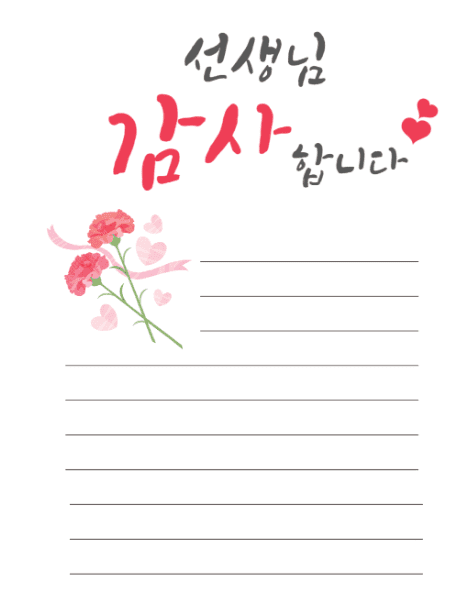 선생님
감사
합니다